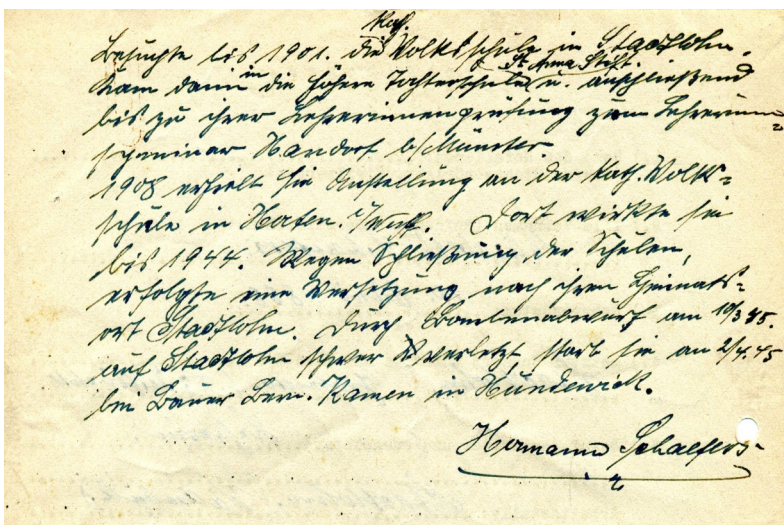 Kath.
Besuchte bis 1901. die Volksschule in Stadtlohn.
St. Anna Stift.
Kam dann in die höhere Töchterschule u. anschließend
bis zu ihrer Lehrerinnenprüfung zum Lehrerinnen
seminar Handorf b/Münster
1908 erhielt sie Anstellung an der kath. Volks=
schule in Herten. i/Westf. Dort wirkte sie
bis 1944. Wegen Schließung der Schulen,
erfolgte eine Versetzung nach ihren Heimats=
ort Stadtlohn. Durch Bombenabwurf am 10/3 45.
auf Stadtlohn schwer verletzt starb sie an 2/4.45
bei Bauer Bern. Ramen in Hundewick.
Hermann Schaefers